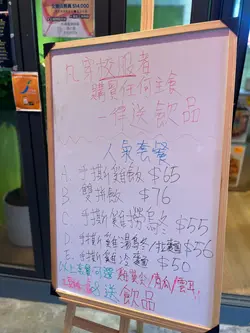 凡穿校服者
購買任何主食
一律送飲品
人氣套餐
A. 手撕雞飯 $65
B 雙拼飯 $76
C 手撕雞撈烏冬 $55
D. 手撕雞湯烏冬/拉麵 $56
E. 手撕雞冷麵 $50
以上套餐可選
送飲品